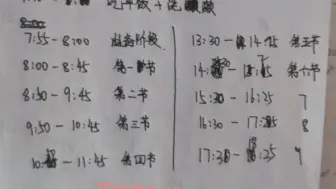 吃早饭 + 洗漱
7:55 - 8:00 准备阶段
8:00 - 8:45 第一节
8:50 - 9:45 第二节
9:50 - 10:45 第三节
11:45 第四节
13:30 - 14:25 第五节
第六节
15:30 - 16:25 7
16:30 - 17:25 8
17:30 - 18:25 9